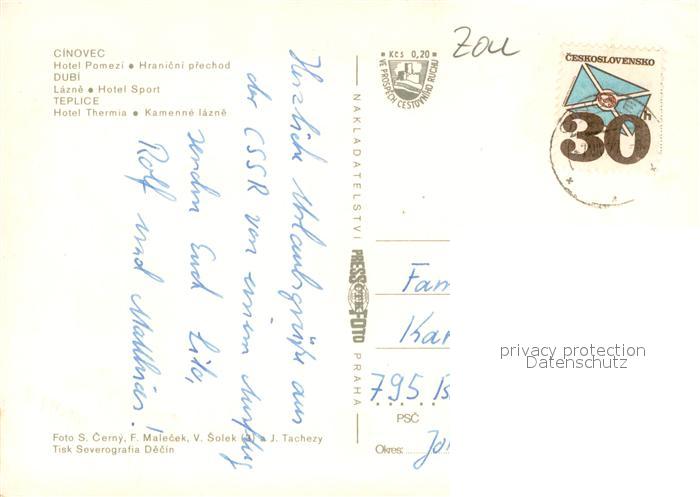 CÍNOVEC
Hotel Pomezí ● Hraniční přechod
DUBÍ
Lázně ● Hotel Sport
TEPLICE
Hotel Thermia ● Kamenné lázně
Herzliche Urlaubsgrüße aus
der CSSR von einem Ausflug
senden Euch Lilo,
Rolf und Matthias!
Foto S. Černý, F. Maleček, V. Šolek a J. Tachezy
Tisk Severografia Děčín
Kčs 0,20
VE PROSPĚCH CESTOVNÍHO RUCHU
NAKLADATELSTVÍ
PRESSFOTO
PRAHA
ČESKOSLOVENSKO
30h
Fam
Kar
795
PSČ
Okres:
privacy protection
Datenschutz